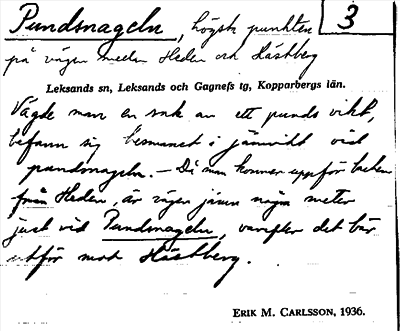 Pundsnageln, högsta punkten 3
på vägen mellan Heden och Hästberg
Leksands sn, Leksands och Gagnefs tg, Kopparbergs län.
Vägde man en sak av ett punds vikt,
befann sig besmanet i jämvikt vid
pundsnageln. — Då man kommer uppför backen
från Heden, är vägen jämn några meter
just vid Pundsnageln, varefter det bär
utför mot Hästberg.
ERIK M. CARLSSON, 1936.